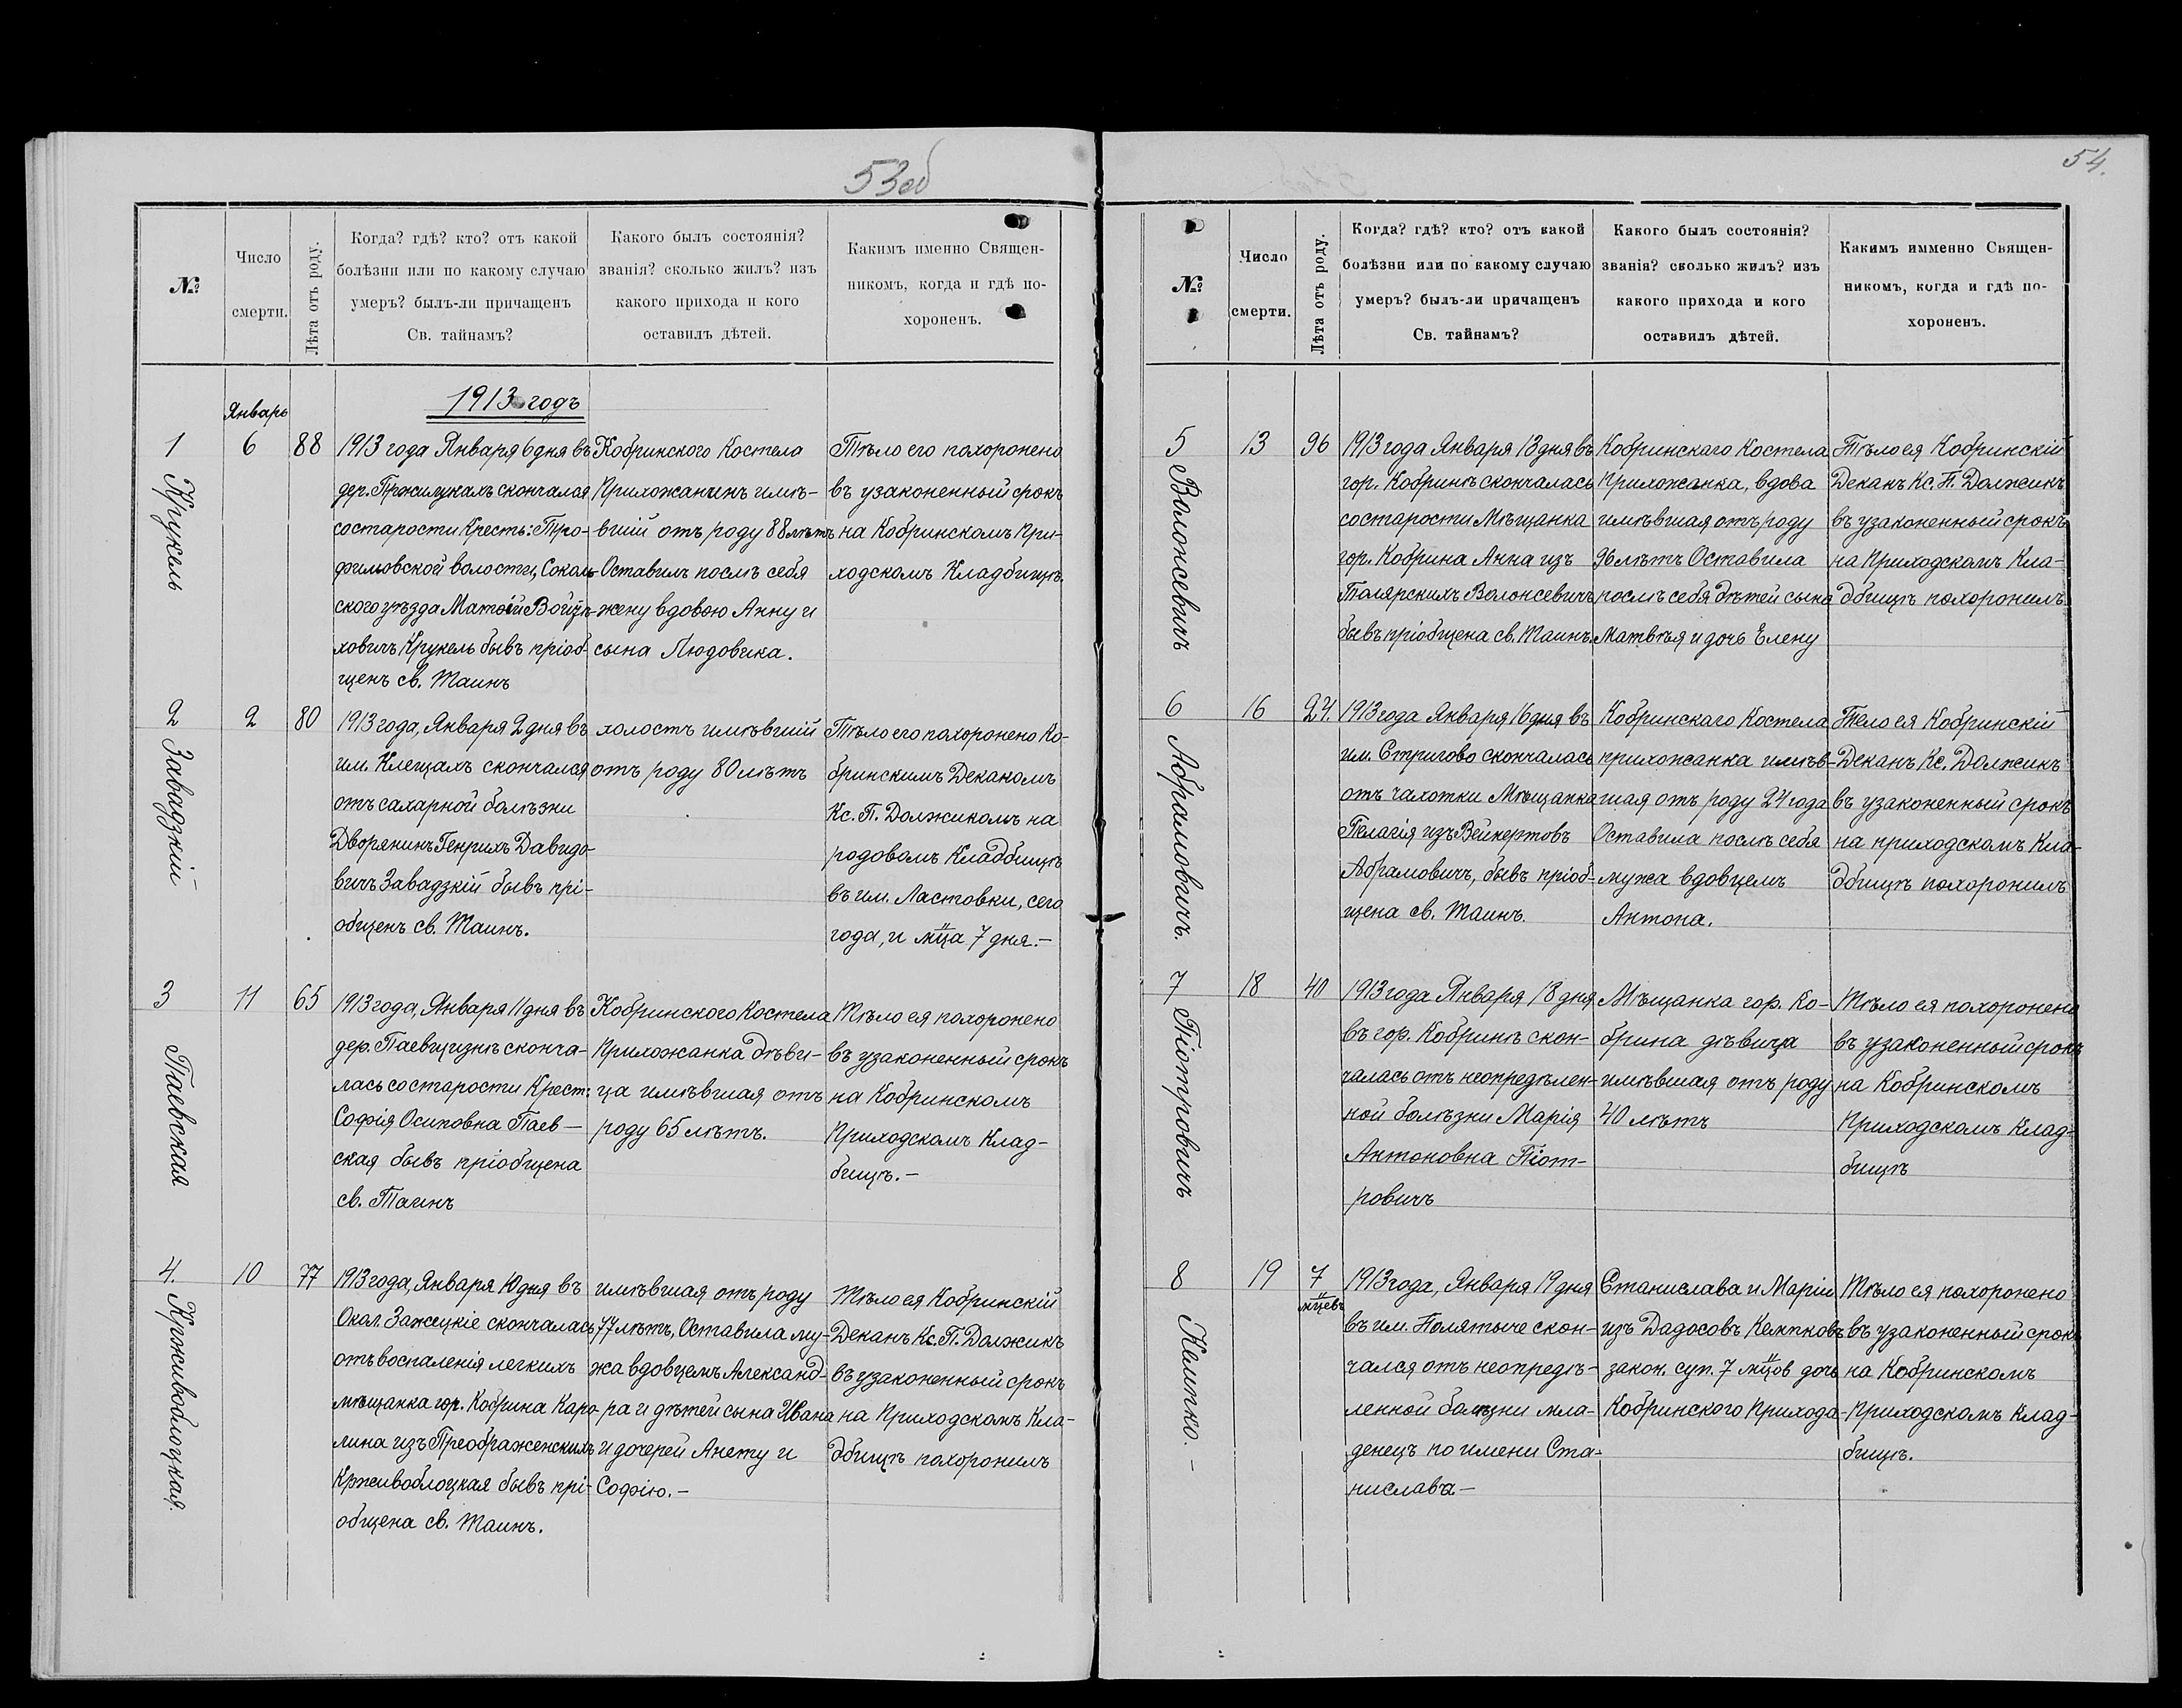 53об
№
Число
смерти.
Лѣта отъ роду.
Когда? гдѣ? кто? отъ какой
болѣзни или по какому случаю
умеръ? былъ-ли причащенъ
Св. тайнамъ?
Какого былъ состоянія?
званія? сколько жилъ? изъ
какого прихода и кого
оставилъ дѣтей.
Какимъ именно Священ-
никомъ, когда и гдѣ по-
хороненъ.
1913 годъ
Январь
1
Крукель
6
88
1913 года Января 6 дня въ
дер. Пржилукахъ скончался
состарости Кресть: Тро-
фимовской волости, Соколь-
ского уѣзда Матѳій Войцѣ-
ховичъ Крукель бывъ пріоб-
щенъ св. Таинъ
Кобринского Костела
Прихожанинъ имѣ-
вшій отъ роду 88 лѣтъ
Оставилъ послѣ себя
жену вдовою Анну и
сына Людовика.
Тѣло его похоронено
въ узаконенный срокъ
на Кобринскомъ При-
ходскомъ Кладбищѣ.
2
Завадзкій
2
80
1913 года, Января 2 дня въ
им. Клещахъ скончался
отъ сахарной болѣзни
Дворянинъ Генрихъ Давидо-
вичъ Завадзкій бывъ прі-
общенъ св. Таинъ.
холостъ имѣвшій
отъ роду 80 лѣтъ
Тѣло его похоронено Ко-
бринскимъ Деканомъ
Кс. П. Должикомъ на
родовомъ Кладбищѣ
въ им. Ластовки, сего
года, и мца 7 дня.-
3
Паевская
11
65
1913 года, Января 11 дня въ
дер. Паевщизнѣ сконча-
лась состарости Крест:
Софія Осиповна Паев-
ская бывъ пріобщена
св. Таинъ
Кобринского Костела
Прихожанка дѣви-
ца имѣвшая отъ
роду 65 лѣтъ.
Тѣло ея похоронено
въ узаконенный срокъ
на Кобринскомъ
Приходскомъ Клад-
бищѣ.-
4.
Крживоблоцкая.
10
77
1913 года, Января 10 дня въ
Окол. Зажецкіе скончалась
отъ воспаленія легкихъ
мѣщанка гор. Кобрина Каро-
лина изъ Преображенскихъ
Крживоблоцкая бывъ прі-
общена св. Таинъ.
имѣвшая отъ роду
77 лѣтъ, Оставила му-
жа вдовцемъ Александ-
ра и дѣтей сына Ивана
и дочерей Анету и
Софію.-
Тѣло ея Кобринскій
Деканъ Кс. П. Должикъ
въ узаконенный срокъ
на Приходскомъ Кла-
дбищѣ похоронилъ
54.
№
Число
смерти.
Лѣта отъ роду.
Когда? гдѣ? кто? отъ какой
болѣзни или по какому случаю
умеръ? былъ-ли причащенъ
Св. тайнамъ?
Какого былъ состоянія?
званія? сколько жилъ? изъ
какого прихода и кого
оставилъ дѣтей.
Какимъ имменно Священ-
никомъ, когда и гдѣ по-
хороненъ.
5
Волонсевичъ
13
96
1913 года Января 13 дня въ
гор. Кобринѣ скончалась
состарости Мѣщанка
гор. Кобрина Анна изъ
Полярскихъ Волонсевичъ
бывъ пріобщена св. Таинъ.
Кобринскаго Костела
Прихожанка, вдова
имѣвшая отъ роду
96 лѣтъ Оставила
послѣ себя дѣтей сына
Матвѣя и дочь Елену
Тѣло ея Кобринскій
Деканъ Кс. П. Должикъ
въ узаконенный срокъ
на Приходскомъ Кла-
дбищѣ похоронилъ
6
Абрамовичъ.
16
24.
1913 года Января 16 дня въ
им. Стригово скончалась
отъ чахотки Мѣщанка
Пелагія изъ Вейнертовъ
Абрамовичъ, бывъ пріоб-
щена св. Таинъ.
Кобринскаго Костела
прихожанка имѣв-
шая отъ роду 24 года
Оставила послѣ себя
мужа вдовцемъ
Антона.
Тело ея Кобринскій
Деканъ Кс. Должикъ
въ узаконенный срокъ
на приходскомъ Кла-
дбищѣ похоронилъ
7
Піотровичъ
18
40
1913 года Января 18 дня
въ гор. Кобринѣ скон-
чалась отъ неопредѣлен-
ной болѣзни Марія
Антоновна Піот-
ровичъ
Мѣщанка гор. Ко-
брина дѣвица
имѣвшая отъ роду
40 лѣтъ
Тѣло ея похоронено
въ узаконенный срокъ
на Кобринскомъ
Приходскомъ Клад-
бищѣ
8
Кемпко.-
19
7
мцевъ
1913 года, Января 19 дня
въ им. Полятыче скон-
чался отъ неопредѣ-
ленной болѣзни мла-
денецъ по имени Ста-
нислава-
Станислава и Маріи
изъ Дадосовъ Кемпковъ
закон. суп. 7 мцов дочь
Кобринского Прихода-
Тѣло ея похоронено
въ узаконенный срокъ
на Кобринскомъ
Приходскомъ Клад-
бищѣ.